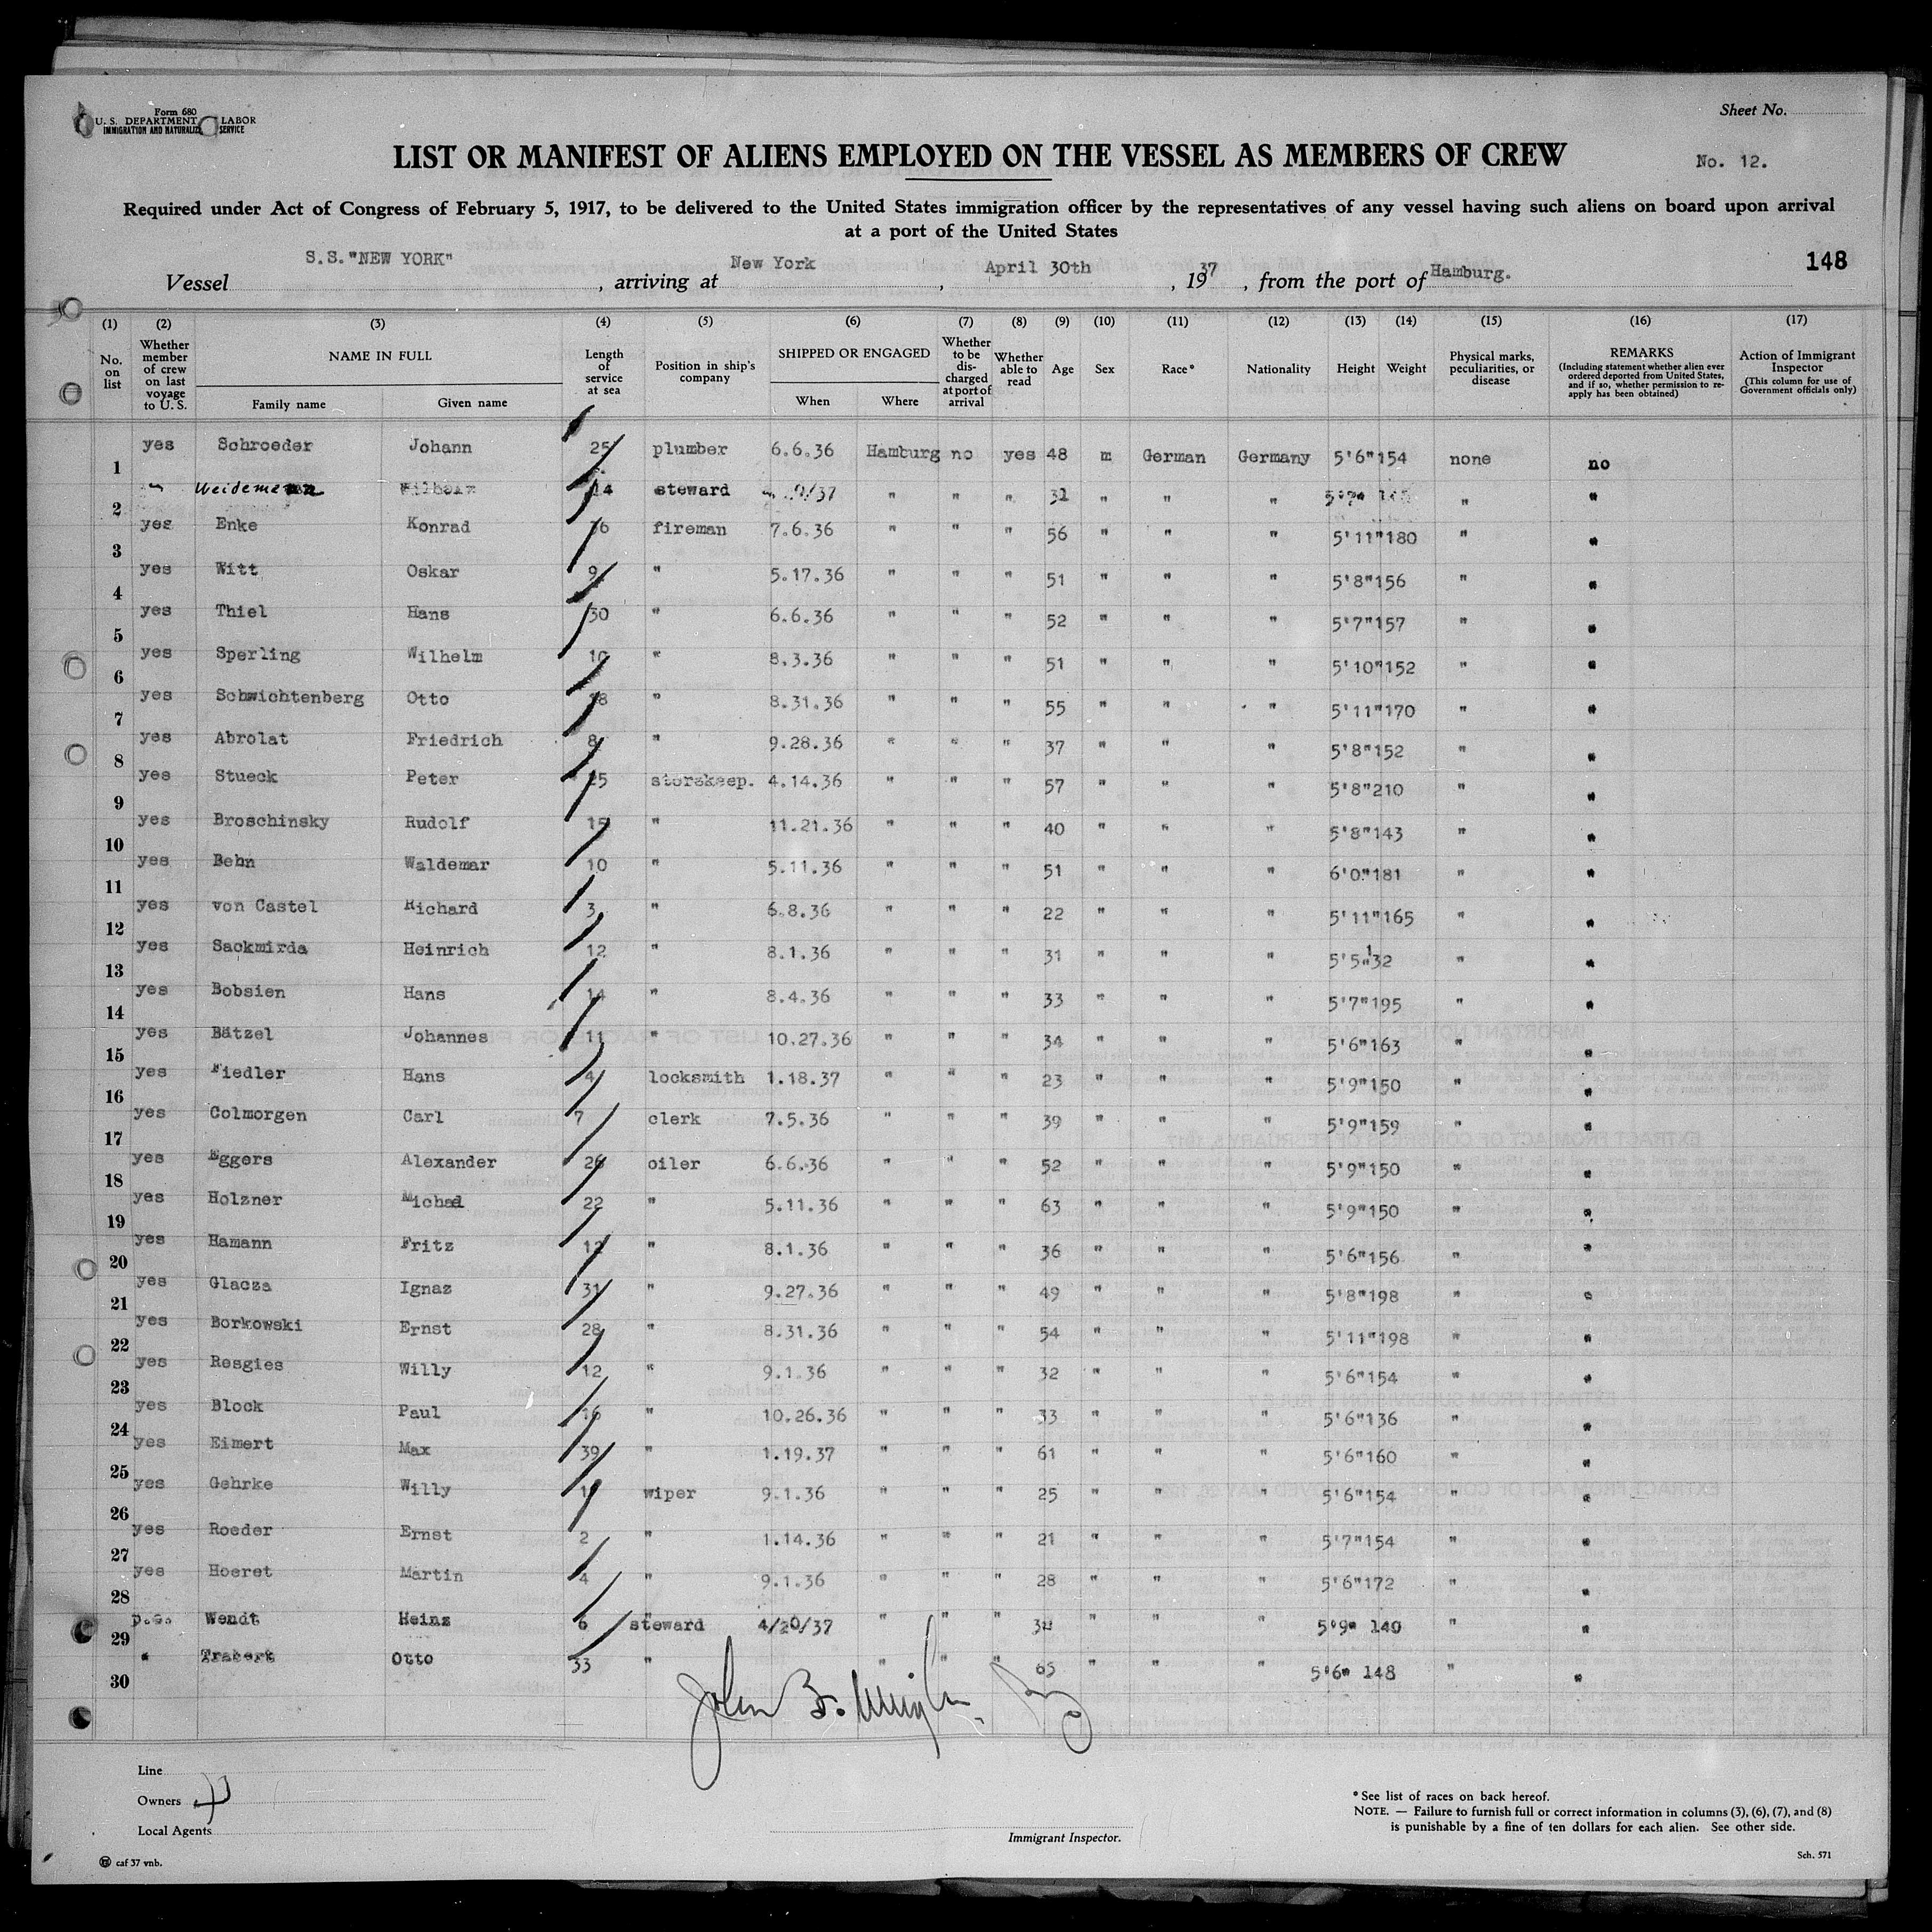 Form 680
U. S. DEPARTMENT LABOR
IMMIGRATION AND NATURALIZ SERVICE
Sheet No.
LIST OR MANIFEST OF ALIENS EMPLOYED ON THE VESSEL AS MEMBERS OF CREW
No. 12.
Required under Act of Congress of February 5, 1917, to be delivered to the United States immigration officer by the representatives of any vessel having such aliens on board upon arrival
at a port of the United States
148
Vessel S.S."NEW YORK", arriving at New York, April 30th, 1937, from the port of Hamburg.
(1) (2) (3) (4) (5) (6) (7) (8) (9) (10) (11) (12) (13) (14) (15) (16) (17)
No. on list
Whether member of crew on last voyage to U. S.
NAME IN FULL
Family name Given name
Length of service at sea
Position in ship's company
SHIPPED OR ENGAGED
When Where
Whether to be discharged at port of arrival
Whether able to read
Age
Sex
Race*
Nationality
Height
Weight
Physical marks, peculiarities, or disease
REMARKS
(Including statement whether alien ever ordered deported from United States, and if so, whether permission to reapply has been obtained)
Action of Immigrant Inspector
(This column for use of Government officials only)
1 yes Schroeder Johann 25 plumber 6.6.36 Hamburg no yes 48 m German Germany 5'6" 154 none no
2 " Weidemann steward " " " " " " " "
3 yes Enke Konrad fireman 7.6.36 " " " 56 " " " 5'11" 180 " "
4 yes Witt Oskar 9 " 5.17.36 " " " 51 " " " 5'8" 156 " "
5 yes Thiel Hans 30 " 6.6.36 " " " 52 " " " 5'7" 157 " "
6 yes Sperling Wilhelm 10 " 8.3.36 " " " 51 " " " 5'10" 152 " "
7 yes Schwichtenberg Otto " 8.31.36 " " " 55 " " " 5'11" 170 " "
8 yes Abrolat Friedrich 8 " 9.28.36 " " " 37 " " " 5'8" 152 " "
9 yes Stueck Peter 25 storekeep. 4.14.36 " " " 57 " " " 5'8" 210 " "
10 yes Broschinsky Rudolf 15 " 11.21.36 " " " 40 " " " 5'8" 143 " "
11 yes Behn Waldemar 10 " 5.11.36 " " " 51 " " " 6'0" 181 " "
12 yes von Castel Richard 3 " 6.8.36 " " " 22 " " " 5'11" 165 " "
13 yes Sackmirda Heinrich 12 " 8.1.36 " " " 31 " " " 5'5" 132 " "
14 yes Bobsien Hans 14 " 8.4.36 " " " 33 " " " 5'7" 195 " "
15 yes Bätzel Johannes 11 " 10.27.36 " " " 34 " " " 5'6" 163 " "
16 yes Fiedler Hans 4 locksmith 1.18.37 " " " 23 " " " 5'9" 150 " "
17 yes Colmorgen Carl 7 clerk 7.5.36 " " " 39 " " " 5'9" 159 " "
18 yes Eggers Alexander 26 oiler 6.6.36 " " " 52 " " " 5'9" 150 " "
19 yes Holzner Michael 22 " 5.11.36 " " " 63 " " " 5'9" 150 " "
20 yes Hamann Fritz 12 " 8.1.36 " " " 36 " " " 5'6" 156 " "
21 yes Glacza Ignaz 31 " 9.27.36 " " " 49 " " " 5'8" 198 " "
22 yes Borkowski Ernst 28 " 8.31.36 " " " 54 " " " 5'11" 198 " "
23 yes Resgies Willy 12 " 9.1.36 " " " 32 " " " 5'6" 154 " "
24 yes Block Paul 16 " 10.26.36 " " " 33 " " " 5'6" 136 " "
25 yes Eimert Max 39 " 1.19.37 " " " 61 " " " 5'6" 160 " "
26 yes Gehrke Willy wiper 9.1.36 " " " 25 " " " 5'6" 154 " "
27 yes Roeder Ernst 2 " 1.14.36 " " " 21 " " " 5'7" 154 " "
28 yes Hoeret Martin 4 " 9.1.36 " " " 28 " " " 5'6" 172 " "
29 Wendt Heinz 6 steward 4/20/37 " " " " " " 5'9" 140 " "
30 " Trabert Otto 33 " " " " 65 " " " 5'6" 148 " "
John
Line
Owners
Local Agents
Immigrant Inspector.
* See list of races on back hereof.
NOTE. — Failure to furnish full or correct information in columns (3), (6), (7), and (8)
is punishable by a fine of ten dollars for each alien. See other side.
caf 37 vnb.
Sch. 571